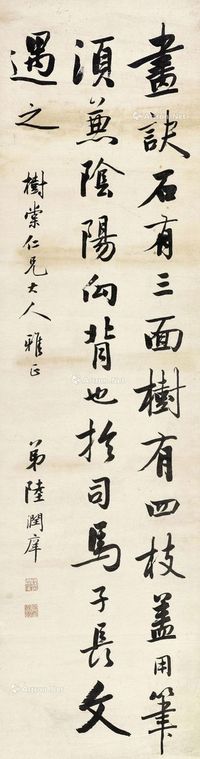 畫訣石有三面樹有四枝蓋用筆
須兼陰陽向背也於司馬子長文
遇之
樹棠仁兄大人雅正
弟陸潤庠